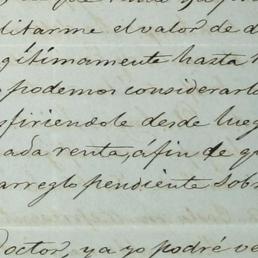 ditarme el valor de d
gítimamente hasta
podemos considerarlo
sfiriendole desde lueg
ada renta, á fin de q
arreglo pendiente sobr
Doctor, ya yo podré ve